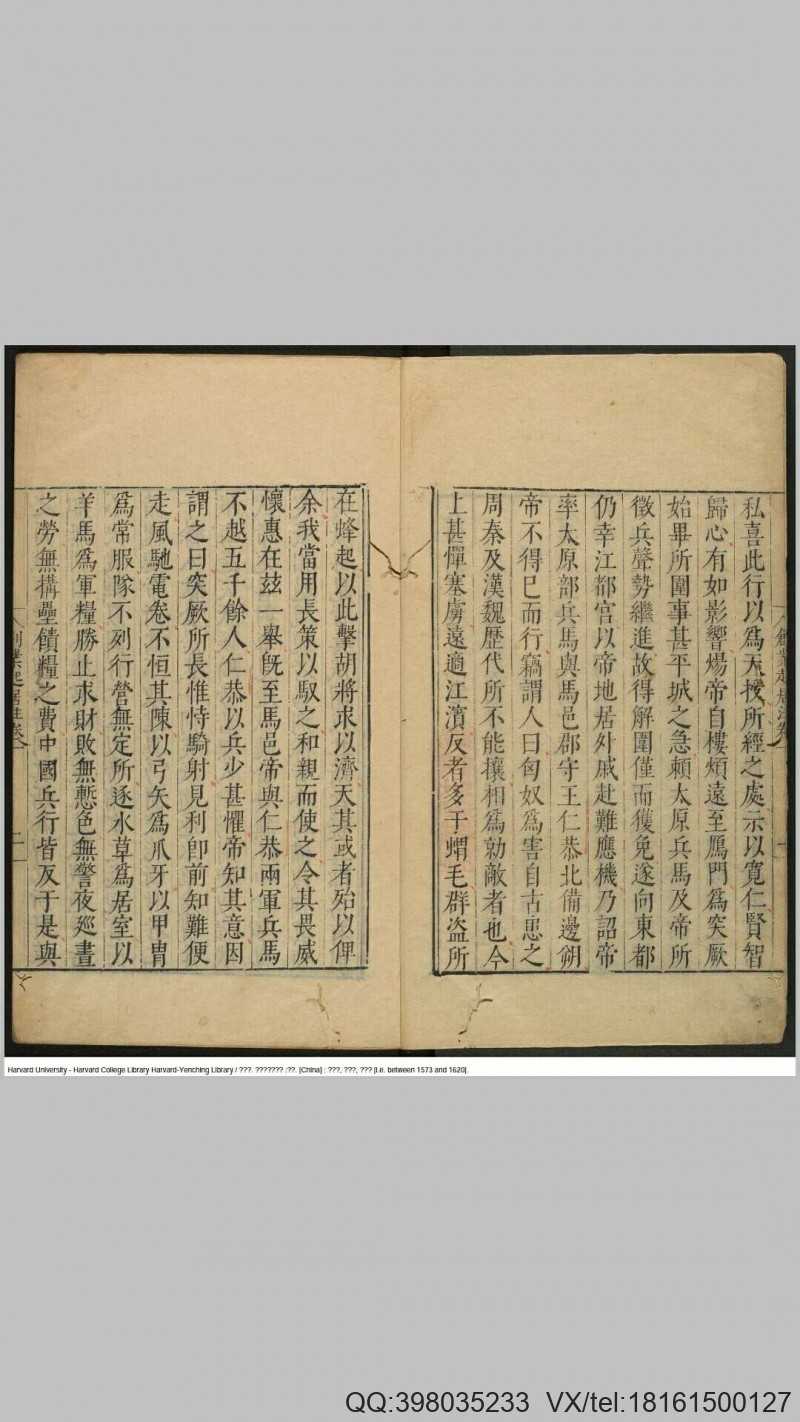 私喜此行以爲天授所經之處示以寬仁賢智
歸心有如影響煬帝自樓煩遠至鴈門爲突厥
始畢所圍事甚平城之急賴太原兵馬及帝所
徵兵聲勢繼進故得解圍僅而獲免遂向東都
仍幸江都宮以帝地居外戚赴難應機乃詔帝
率太原部兵馬與馬邑郡守王仁恭北備邊朔
帝不得已而行竊謂人曰匈奴爲害自古患之
周秦及漢魏歷代所不能攘相爲勍敵者也今
上甚憚塞虜遠適江濱反者多于蝟毛群盜所
在蜂起以此擊胡將求以濟天其或者殆以俾
余我當用長策以馭之和親而使之令其畏威
懷惠在茲一舉旣至馬邑帝與仁恭兩軍兵馬
不越五千餘人仁恭以兵少甚懼帝知其意因
謂之曰突厥所長惟恃騎射見利卽前知難便
走風馳電卷不恒其陳以弓矢爲爪牙以甲冑
爲常服隊不列行營無定所逐水草爲居室以
羊馬爲軍糧勝止求財敗無慙色無警夜廵晝
之勞無搆壘饋糧之費中國兵行皆反于是與
創業起居注卷
Harvard University - Harvard College Library Harvard-Yenching Library / ???. ??????? :??. [China] : ???, ???, ??? [i.e. between 1573 and 1620].
QQ:398035233 VX/tel:18161500127